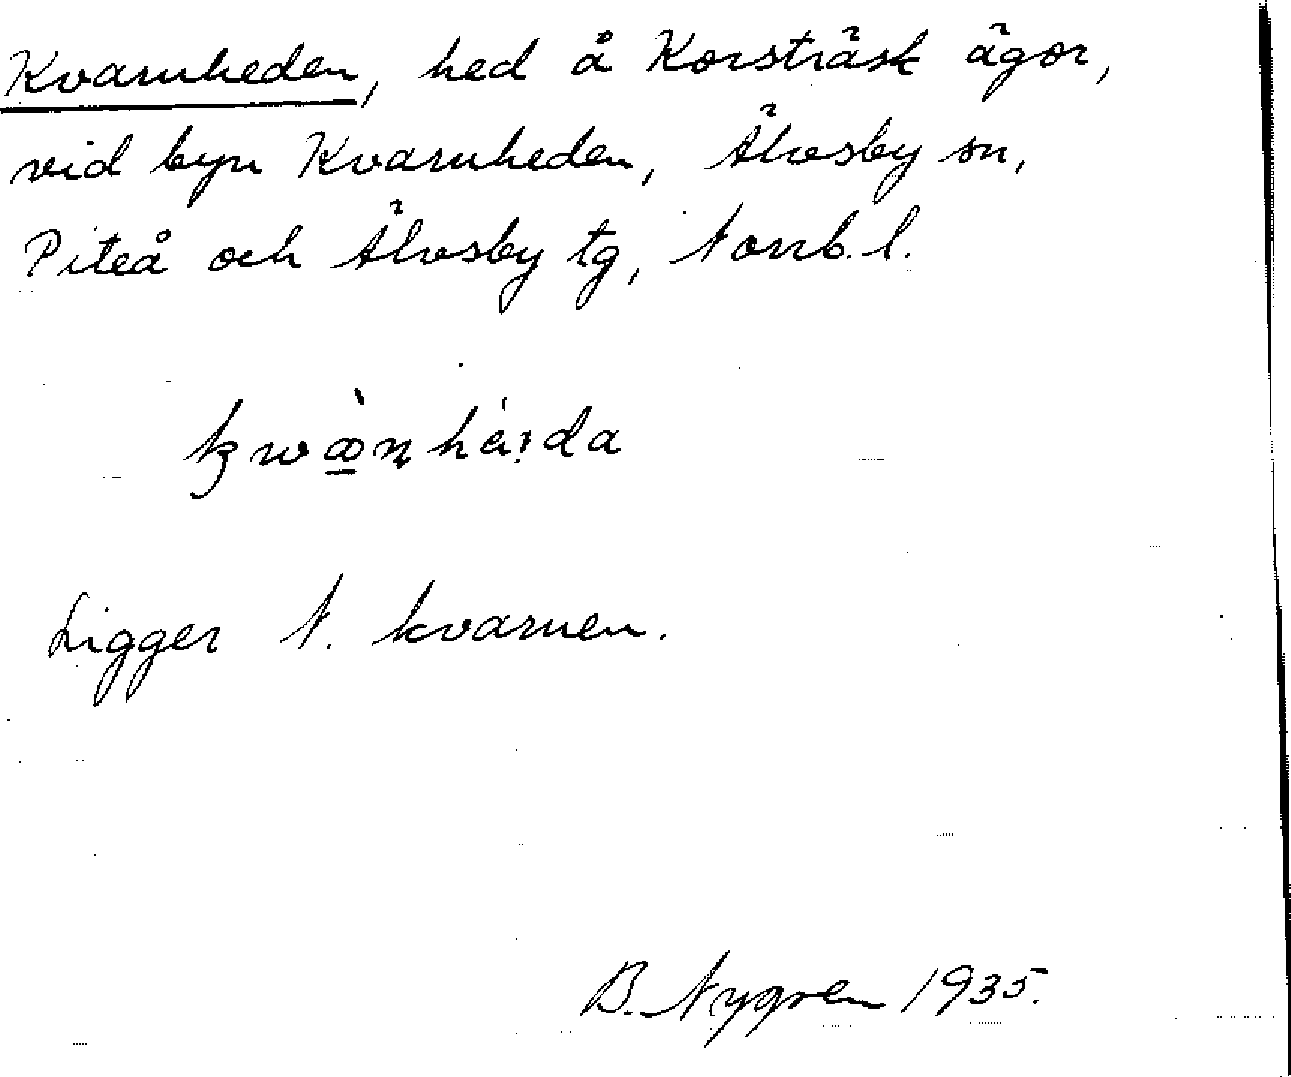 Kvarnheden, hed å Korsträsk ägor,
vid byn Kvarnheden, Älvsby sn,
Piteå och Älvsby tg, Norrb. l.
Ligger N. kvarnen.
B. Nygren 1935.